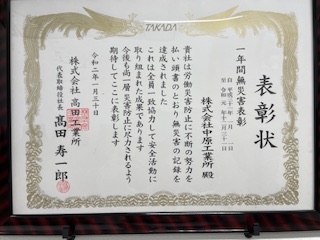 TAKADA
表彰状
一年間無災害表彰
自 平成三十一年一月一日
至 令和元年十二月三十一日
株式会社中原工業所 殿
貴社は労働災害防止に不断の努力を
払い頭書のとおり無災害の記録を
達成されました
これは全員一致協力して安全活動に
取り組まれた成果であります
今後も尚一層災害防止に尽力されるよう
期待してここに表彰します
令和二年一月三十日
株式会社 高田工業所
代表取締役社長 髙田寿一郎